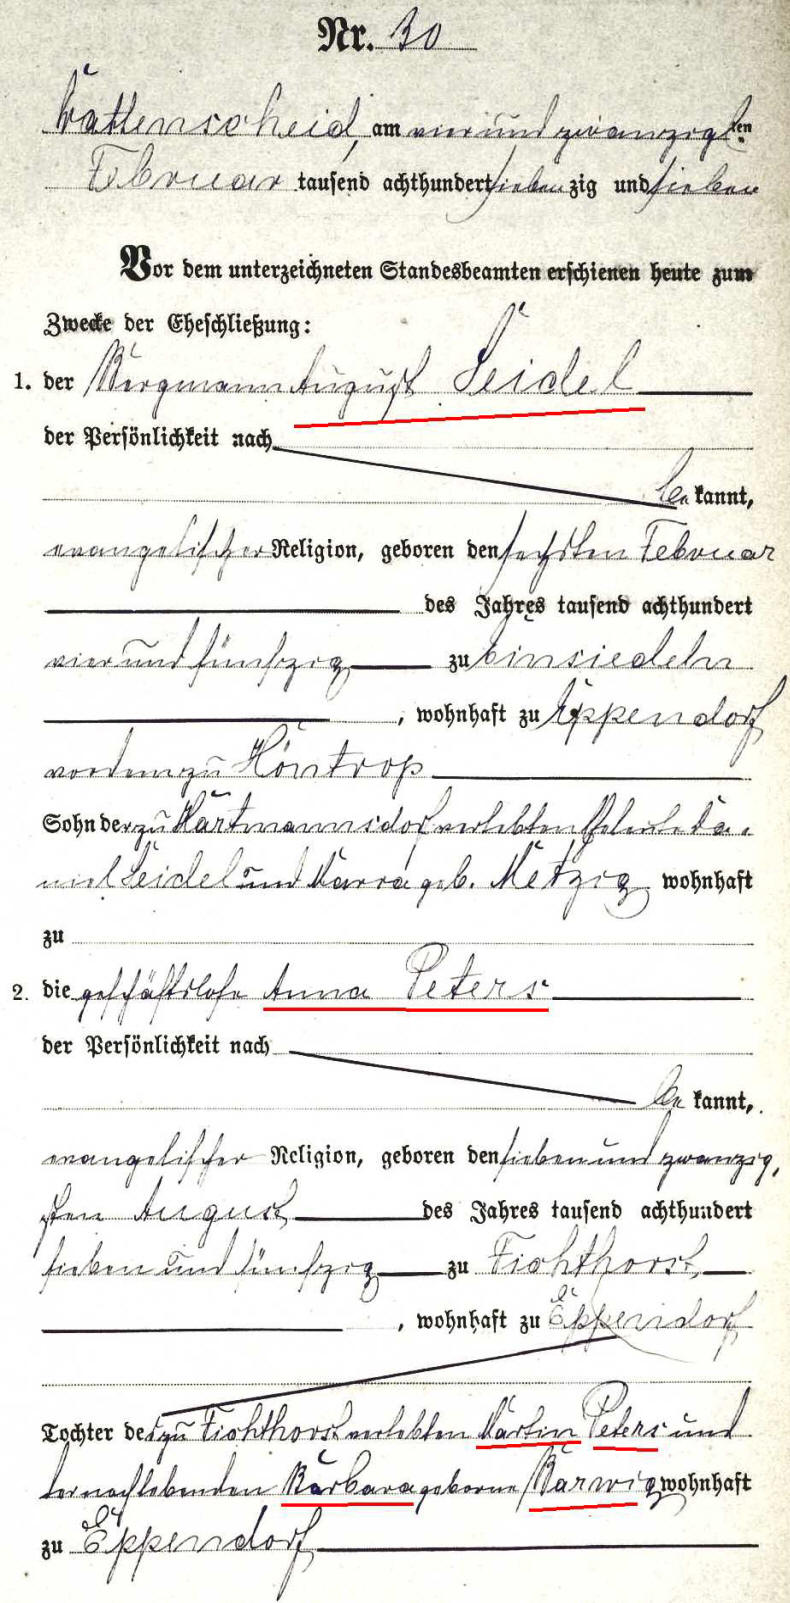 Nr. 30
Wattenscheid, am vier und zwanzigsten
Februar tausend achthundert siebenzig und sieben
Vor dem unterzeichneten Standesbeamten erschienen heute zum
Zwecke der Eheschließung:
1. der Bergmann August Seidel
der Persönlichkeit nach
be kannt,
evangelischer Religion, geboren den sechsten Februar
des Jahres tausend achthundert
vier und fünfzig zu Einsiedeln
, wohnhaft zu Eppendorf
vordem zu Höntrop
Sohn der zu Hartmannsdorf verlebten Eheleute Da-
niel Seidel und Maria geb. Metzig wohnhaft
zu
2. die geschäftslose Anna Peters
der Persönlichkeit nach
be kannt,
evangelischer Religion, geboren den sieben und zwanzig,
sten August des Jahres tausend achthundert
sieben und fünfzig zu Fichthorst
, wohnhaft zu Eppendorf
Tochter des zu Fichthorst verlebten Martin Peters und
der nachlebenden Barbara geborne Barwig wohnhaft
zu Eppendorf